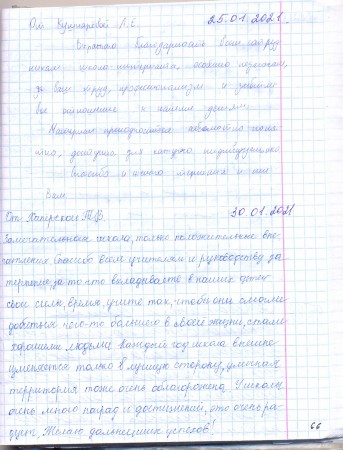 От Кушнаровой Л.С. 25.01.2021.
Выражаю благодарность всем сотруд
никам школы-интерната, особенно педагогам,
за Ваш труд, профессионализм и заботли
вое отношение к нашим детям.
Материал преподносится
доступно для каждого индивидуально
Спасибо и низкого
Вам
От Каперской Т.В. 30.01.2021
Замечательная школа, только положительные впе-
чатления. Спасибо всем учителям и руководству за
терпение, за то что вкладываете в наших детей
свои силы, время, учите так, чтобы они смогли
добиться чего-то большего в своей жизни, стали
хорошими людьми. Каждый год школа внешне
изменяется только в лучшую сторону, школьная
территория тоже очень облагорожена. У школы
очень много наград и достижений, это очень ра-
дует. Желаю дальнейших успехов!
66